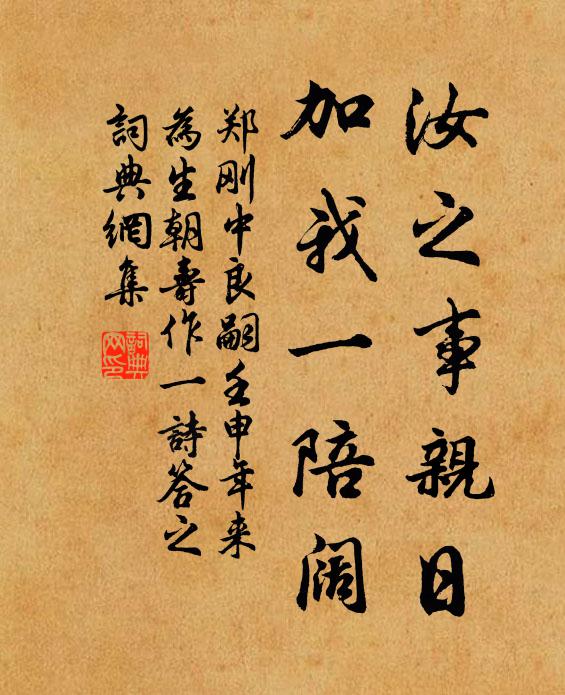 汝之事親日
加我一陪阔
郑刚中良嗣壬申年来
為生朝壽作一詩答之
詞典網集
詞典网印